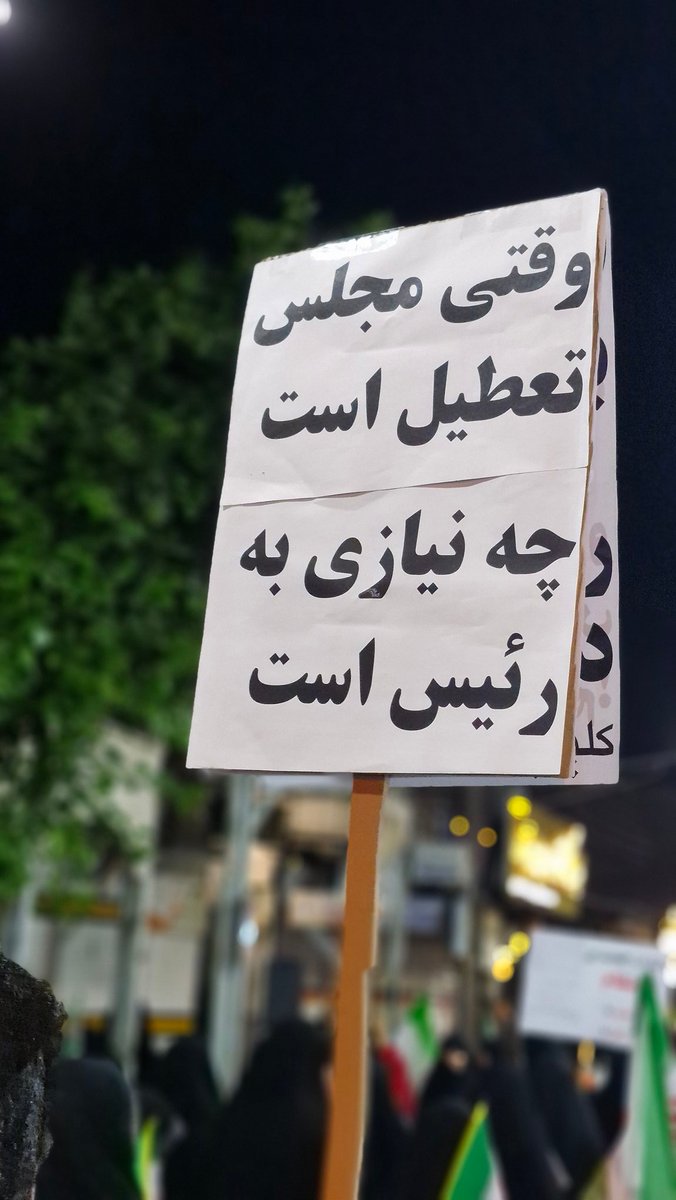 وقتی مجلس
تعطیل است
چه نیازی به
رئیس است